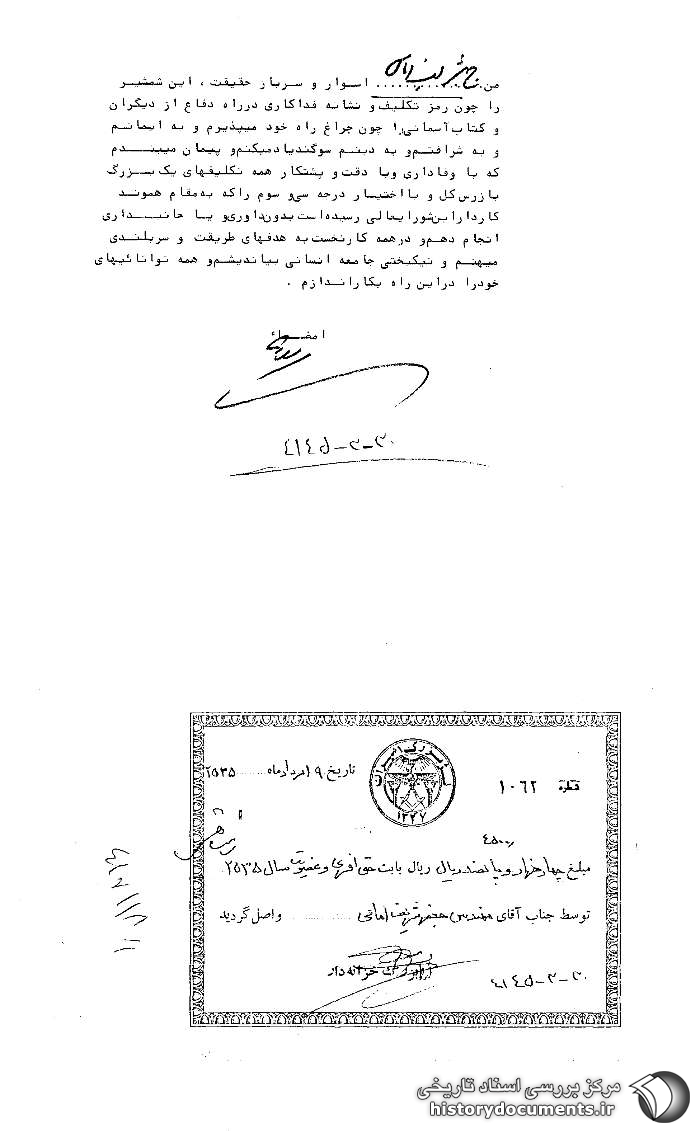 من جعفر شریف امامی اسوار و سرباز حقیقت ، این شمشیر
را چون رمز تکلیف و نشانه فداکاری درراه دفاع از دیگران
و کتاب آسمانی را چون چراغ راه خود میپذیرم و به ایمانم
و به شرافتم و به دینم سوگند یاد میکنم و پیمان میبندم
که با وفاداری و با دقت و پشتکار همه تکلیفهای یک بزرگ
بازرس کل و با اختیار درجه سی و سوم را که به مقام هموند
کاردار این شورایعالی رسیده است بدون داوری و یا جانبداری
انجام دهم و در همه کار نخست به هدفهای طریقت و سربلندی
میهنم و نیکبختی جامعه انسانی بیاندیشم و همه توانائیهای
خود را در این راه بکار اندازم .
امضاء
٤١٤٥-٣-٣٠
لژ بزرگ ایران
١٣٤٧
تاریخ ٩ امرداد ماه ٢٥٣٥
قطره ١٠٦٢
٤٥٠٠
مبلغ چهار هزار و پانصد ریال ریال بابت حق افرهای و عضویت سال ٢٥٣٥
توسط جناب آقای مهندس جعفر شریف امامی واصل گردید
خزانه دار
٤١٤٥-٣-٣٠
مرکز بررسی اسناد تاریخی
historydocuments.ir